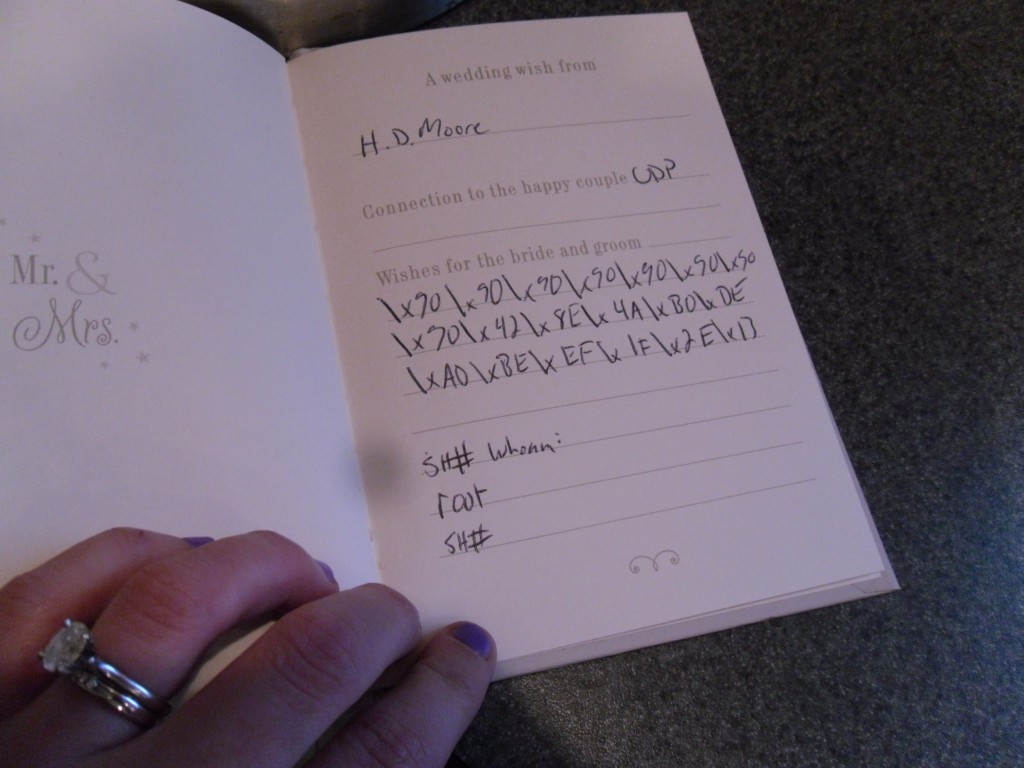 Mr. &
Mrs.
A wedding wish from
H.D. Moore
Connection to the happy couple UDP
Wishes for the bride and groom
\x90\x90\x90\x90\x90\x90\x90
\x90\x42\x8E\x4A\xB0\xDE
\xAD\xBE\xEF\x1F\x2E\x13
SH# whoami
root
SH#